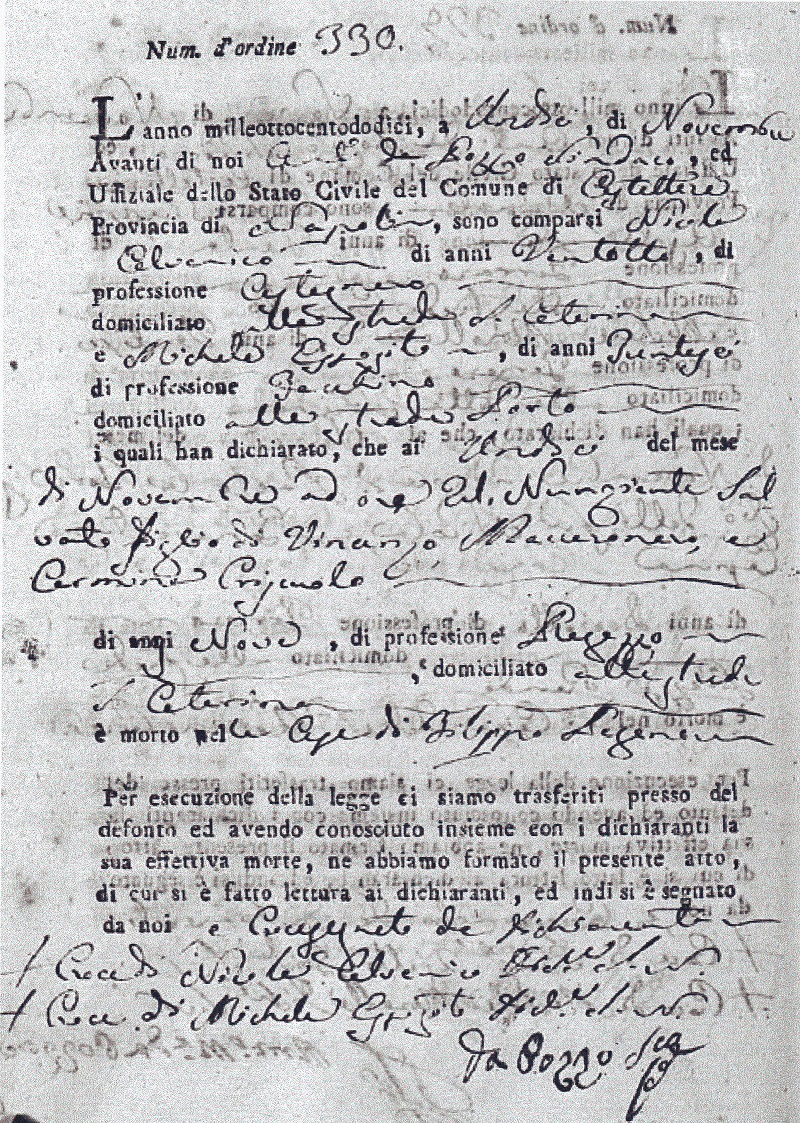 Num. d'ordine 330.
L'anno milleottocentododici, a Undici, di Novembre
Avanti di noi da Pozzo Sindaco, ed
Uffiziale dello Stato Civile del Comune di
Provincia di Napoli, sono comparsi Nicola
di anni Ventotto, di
professione
domiciliato alla strada S. Caterina
e Michele Esposito, di anni
di professione Facchino
domiciliato alla strada Porto
i quali han dichiarato, che ai Undici del mese
di Novembre ad ore Nunziante Sal
vato figlio di Vincenzo, Maccaronaro, e
Carmina
di anni Nove, di professione Ragazzo
, domiciliato alla strada
S. Caterina
è morto nella Casa di Filippo
Per esecuzione della legge ci siamo trasferiti presso del
defonto ed avendo conosciuto insieme con i dichiaranti la
sua effettiva morte, ne abbiamo formato il presente atto,
di cui si è fatto lettura ai dichiaranti, ed indi si è segnato
da noi e Crocesegnato da dichiaranti
+ Croce di Nicola
+ Croce di Michele Esposito
da Pozzo